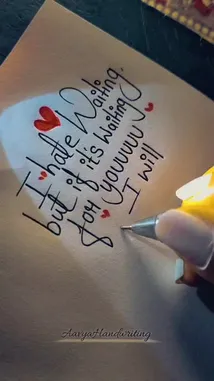 I hate Waiting
but if it's waiting
for youuuuu
I will
AaryaHandwriting